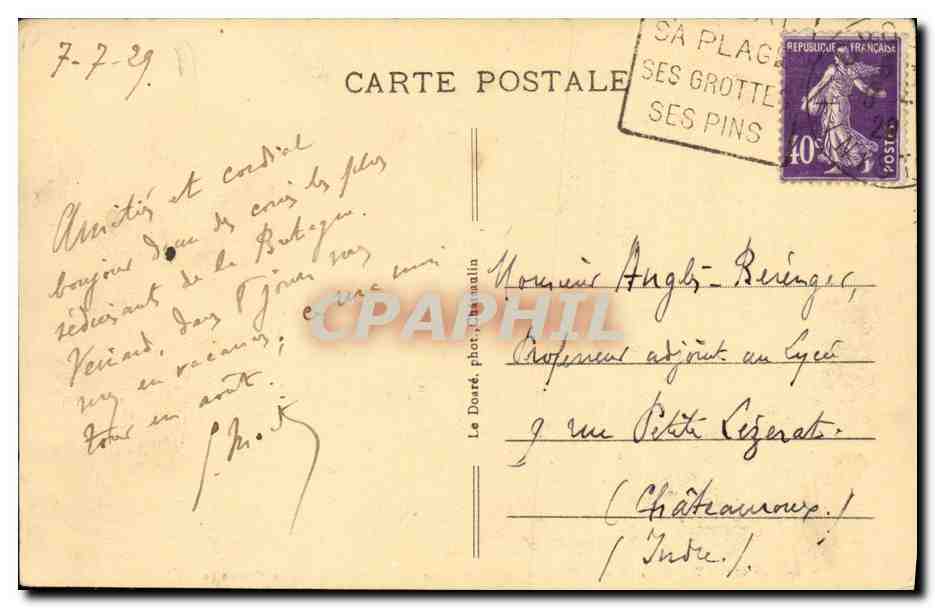 7-7-29
CARTE POSTALE
SA PLAGE
SES GROTTE
SES PINS
REPUBLIQUE FRANÇAISE
40c
POSTES
Amitiés et cordial
bonjour d'un des coins les plus
séduisants de la Bretagne.
dans 8 jours
en vacances;
tour en août.
Le Doaré, phot., Châteaulin
CPAPHIL
Monsieur Anglès-Bérenger,
Professeur adjoint au Lycée
9 rue Petite Lézerat.
(Châteauroux.)
(Indre.)